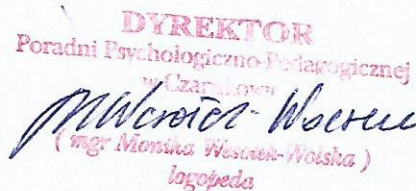 DYREKTOR
Poradni Psychologiczno-Pedagogicznej
w Czarnkowie
( mgr Monika Wolska )
logopeda